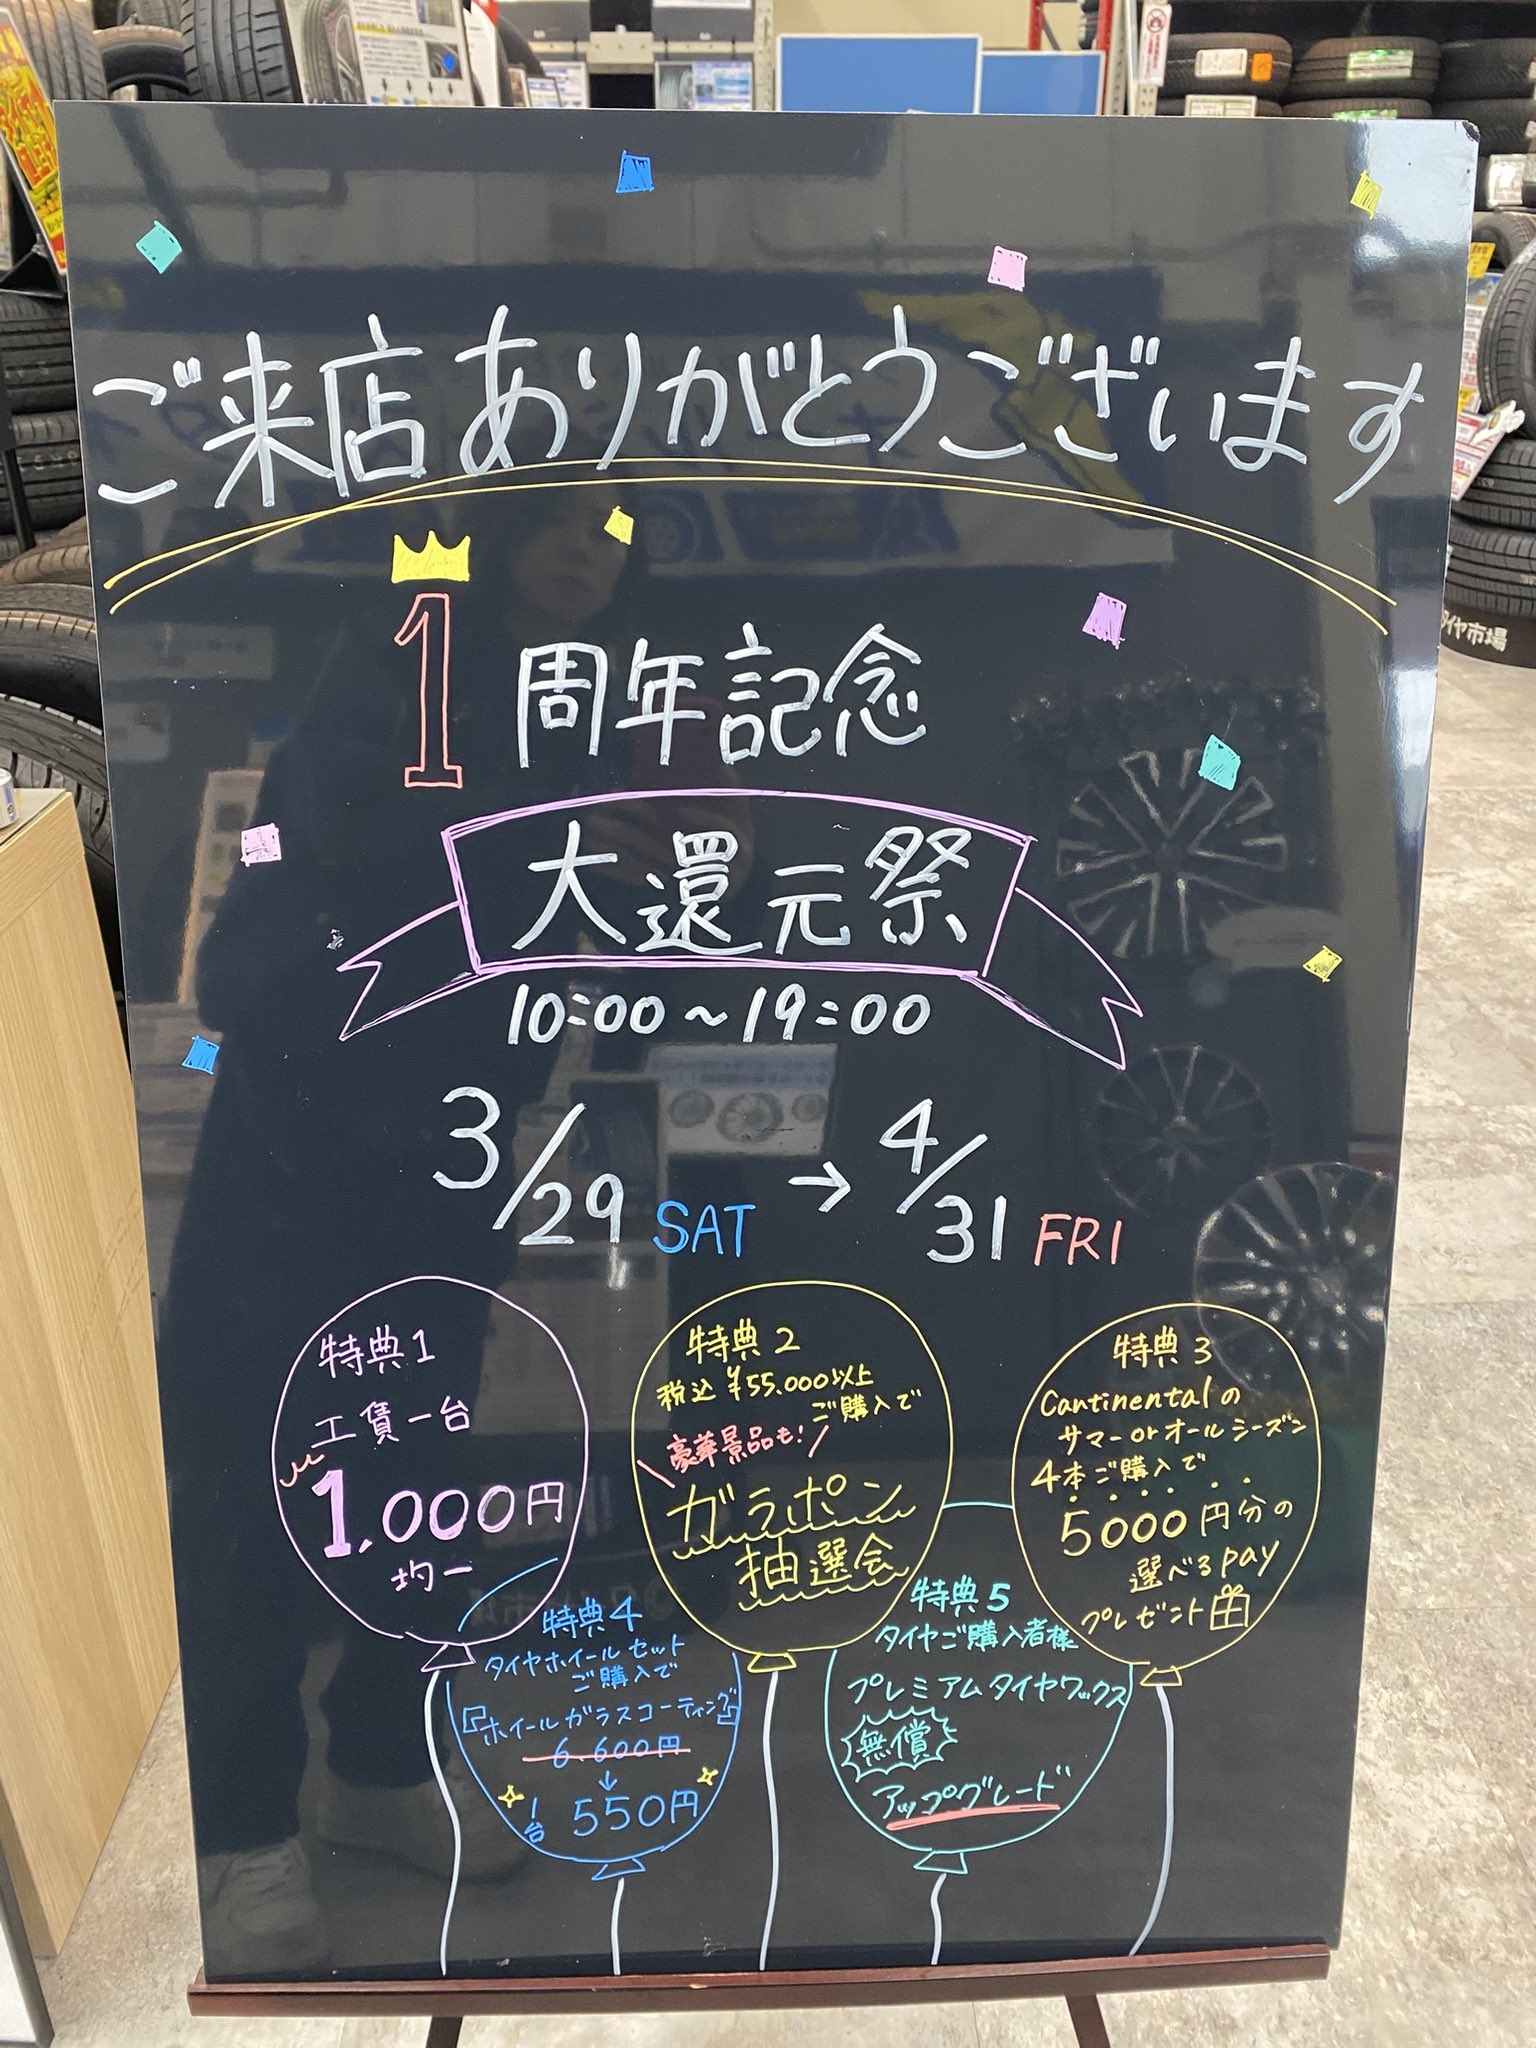 ご来店ありがとうございます
1周年記念
大還元祭
10:00〜19:00
3/29 SAT → 4/31 FRI
特典1
工賃一台
1,000円
均一
特典2
税込¥55,000以上
ご購入で
豪華景品も!
ガラポン
抽選会
特典3
Cantinentalの
サマーorオールシーズン
4本ご購入で
5000円分の
選べるpay
プレゼント
特典4
タイヤホイールセット
ご購入で
『ホイールガラスコーティング』
6,600円
↓
1台 550円
特典5
タイヤご購入者様
プレミアムタイヤワックス
無償
アップグレード
タイヤ市場